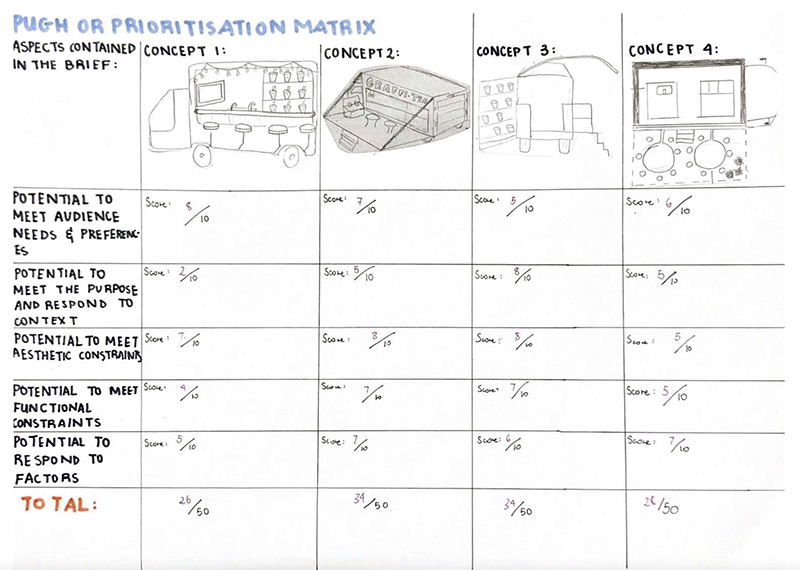 PUGH OR PRIORITISATION MATRIX
ASPECTS CONTAINED IN THE BRIEF:
CONCEPT 1:
CONCEPT 2:
GRAFFI-TI
CONCEPT 3:
CONCEPT 4:
POTENTIAL TO MEET AUDIENCE NEEDS & PREFERENC-ES
Score: 8/10
Score: 7/10
Score: 5/10
Score: 6/10
POTENTIAL TO MEET THE PURPOSE AND RESPOND TO CONTEXT
Score: 2/10
Score: 5/10
Score: 8/10
Score: 5/10
POTENTIAL TO MEET AESTHETIC CONSTRAINTS
Score: 7/10
Score: 8/10
Score: 8/10
Score: 5/10
POTENTIAL TO MEET FUNCTIONAL CONSTRAINTS
Score: 4/10
Score: 7/10
Score: 7/10
Score: 5/10
POTENTIAL TO RESPOND TO FACTORS
Score: 5/10
Score: 7/10
Score: 6/10
Score: 7/10
TOTAL:
26/50
34/50
34/50
28/50